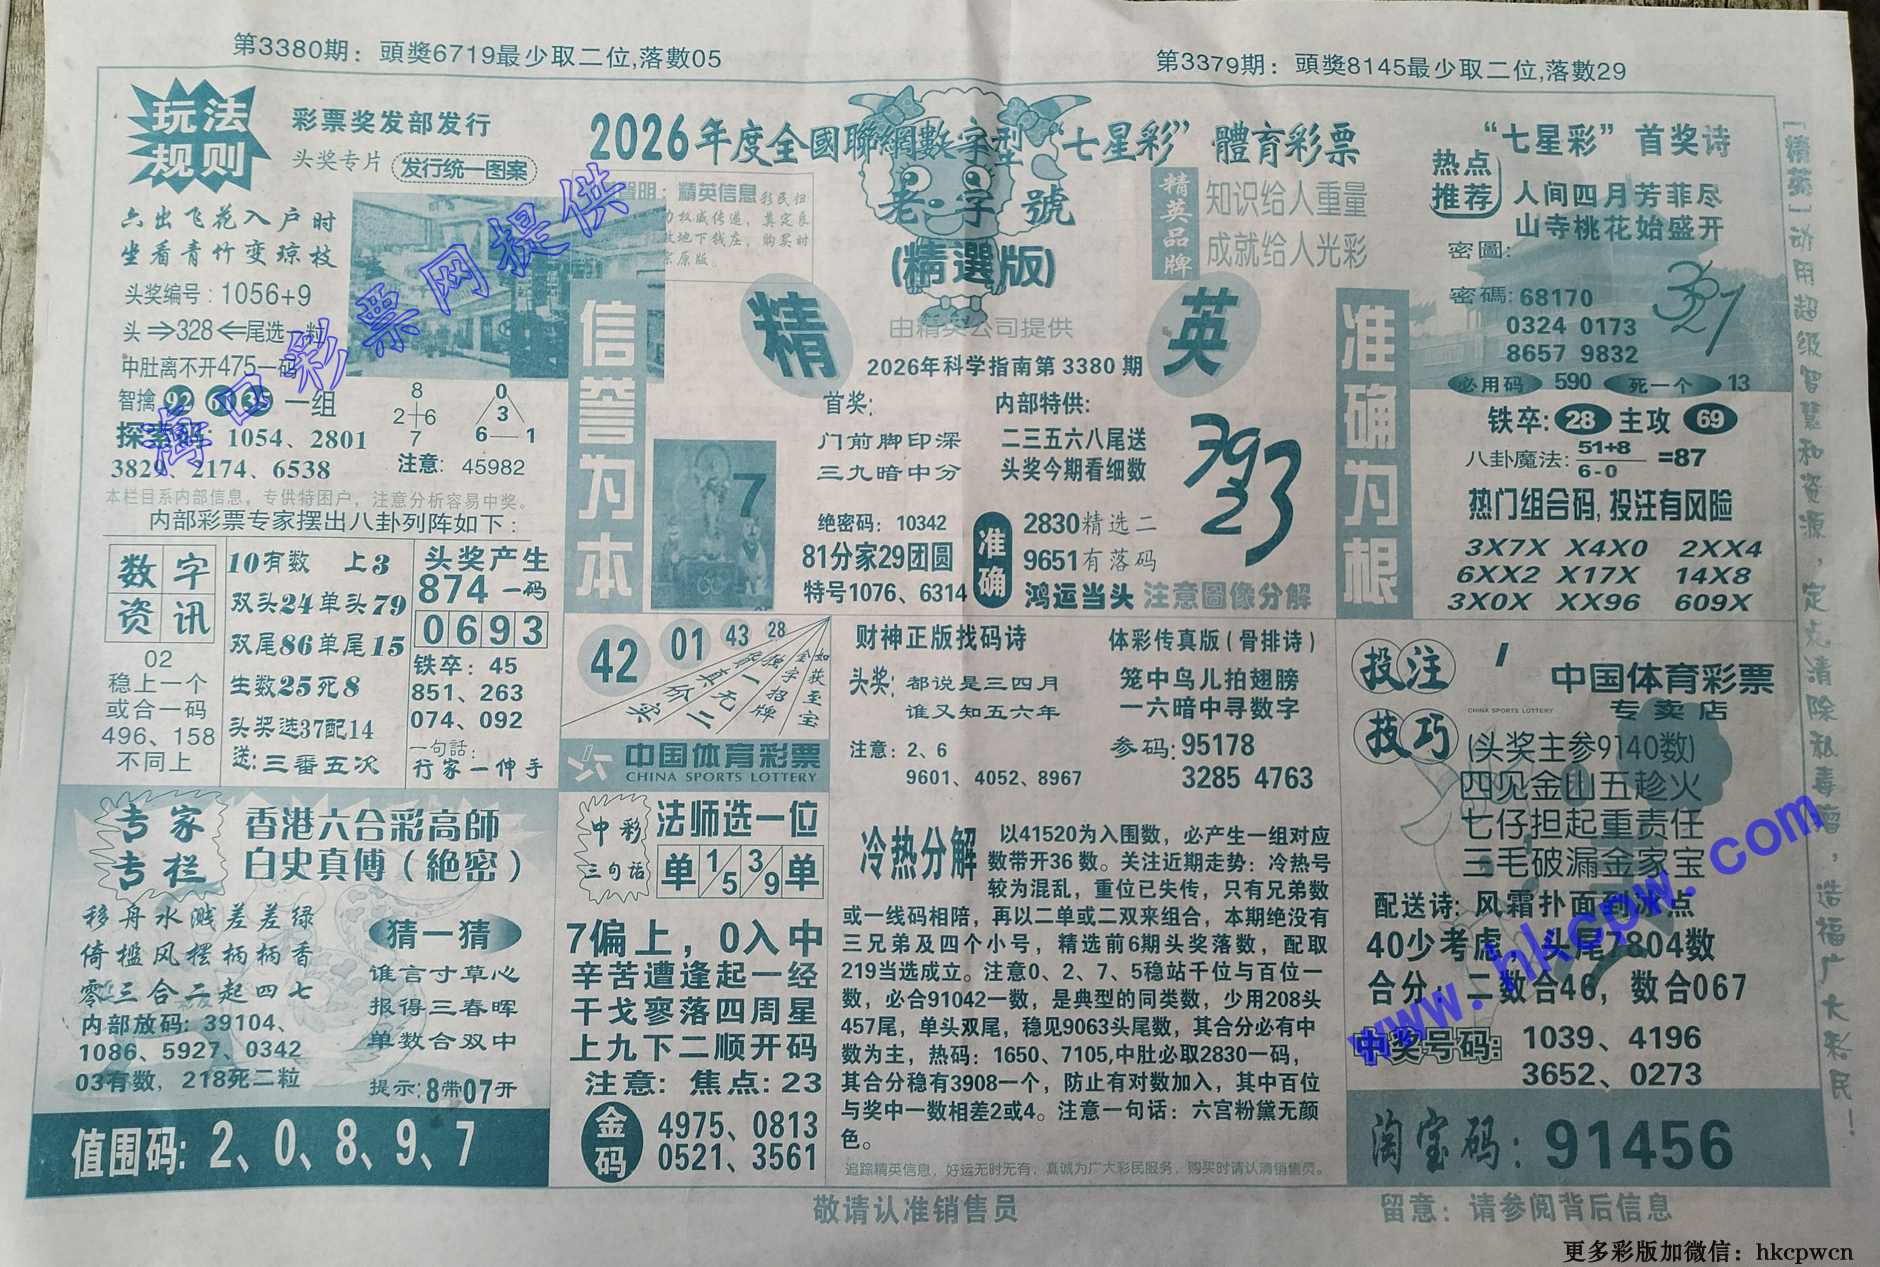 第3380期：頭獎6719最少取二位,落數05
第3379期：頭獎8145最少取二位,落數29
玩法
规则
彩票奖发部发行
头奖专片
发行统一图案
2026年度全國聯網數字型“七星彩”體育彩票
老字號
(精選版)
由精英公司提供
精英
2026年科学指南第3380期
精英品牌
知识给人重量
成就给人光彩
“七星彩”首奖诗
热点
推荐
人间四月芳菲尽
山寺桃花始盛开
密圖:
密碼:68170
0324 0173
8657 9832
必用码 590 死一个 13
327
六出飞花入户时
坐看青竹变琼枝
头奖编号:1056+9
头⇒328⇐尾选一粒
中肚离不开475一码
智擒 92 60 35 一组
1054、2801
3829、2174、6538
8
2 6
7
0
3
6 1
注意: 45982
本栏目系内部信息，专供特困户，注意分析容易中奖。
内部彩票专家摆出八卦列阵如下:
数字
资讯
02
稳上一个
或合一码
496、158
不同上
10有数 上3
双头24单头79
双尾86单尾15
生数25死8
头奖选37配14
送:三番五次
头奖产生
874一码
0693
铁卒: 45
851、263
074、092
一句話:
行家一伸手
信誉为本
7
首奖:
门前脚印深
三九暗中分
内部特供:
二三五六八尾送
头奖今期看细数
绝密码: 10342
81分家29团圆
特号1076、6314
准确
2830精选二
9651有落码
鸿运当头 注意圖像分解
793
23
准确为根
铁卒: 28 主攻 69
八卦魔法: 51+8 / 6-0 =87
热门组合码,投注有风险
3X7X X4X0 2XX4
6XX2 X17X 14X8
3X0X XX96 609X
42 01 43 28
如获至宝
金字招牌
独一无二
实
中国体育彩票
CHINA SPORTS LOTTERY
财神正版找码诗
头奖: 都说是三四月
谁又知五六年
注意: 2、6
9601、4052、8967
体彩传真版(骨排诗)
笼中鸟儿拍翅膀
一六暗中寻数字
参码:95178
3285 4763
投注
技巧
中国体育彩票
CHINA SPORTS LOTTERY
专卖店
(头奖主参9140数)
四见金山五趁火
七仔担起重责任
三毛破漏金家宝
配送诗: 风霜扑面到冰点
40少考虑，头尾7804数
合分: 二数合46，数合067
中奖号码: 1039、4196
3652、0273
淘宝码: 91456
专家
专栏
香港六合彩高師
白史真傅(絶密)
移舟水溅差差绿
倚槛风摆柄柄香
零三合二起四七
内部放码: 39104、
1086、5927、0342
03有数，218死二粒
猜一猜
谁言寸草心
报得三春晖
单数合双中
提示:8带07开
值围码: 2、0、8、9、7
中彩
三句话
法师选一位
单 1/5 3/9 单
7偏上，0入中
辛苦遭逢起一经
干戈寥落四周星
上九下二顺开码
注意: 焦点: 23
金码
4975、0813
0521、3561
冷热分解
以41520为入围数，必产生一组对应
数带开36数。关注近期走势：冷热号
较为混乱，重位已失传，只有兄弟数
或一线码相陪，再以二单或二双来组合，本期绝没有
三兄弟及四个小号，精选前6期头奖落数，配取
219当选成立。注意0、2、7、5稳站千位与百位一
数，必合91042一数，是典型的同类数，少用208头
457尾，单头双尾，稳见9063头尾数，其合分必有中
数为主，热码：1650、7105,中肚必取2830一码，
其合分稳有3908一个，防止有对数加入，其中百位
与奖中一数相差2或4。注意一句话：六宫粉黛无颜
色。
追踪精英信息，好运无时无有，真诚为广大彩民服务，购买时请认清销售员。
敬请认准销售员
留意: 请参阅背后信息
[精英]动用超级智慧和资源，定志清除私毒瘤，造福广大彩民！
彩票网提供
www.hkcpw.com
更多彩版加微信：hkcpwcn